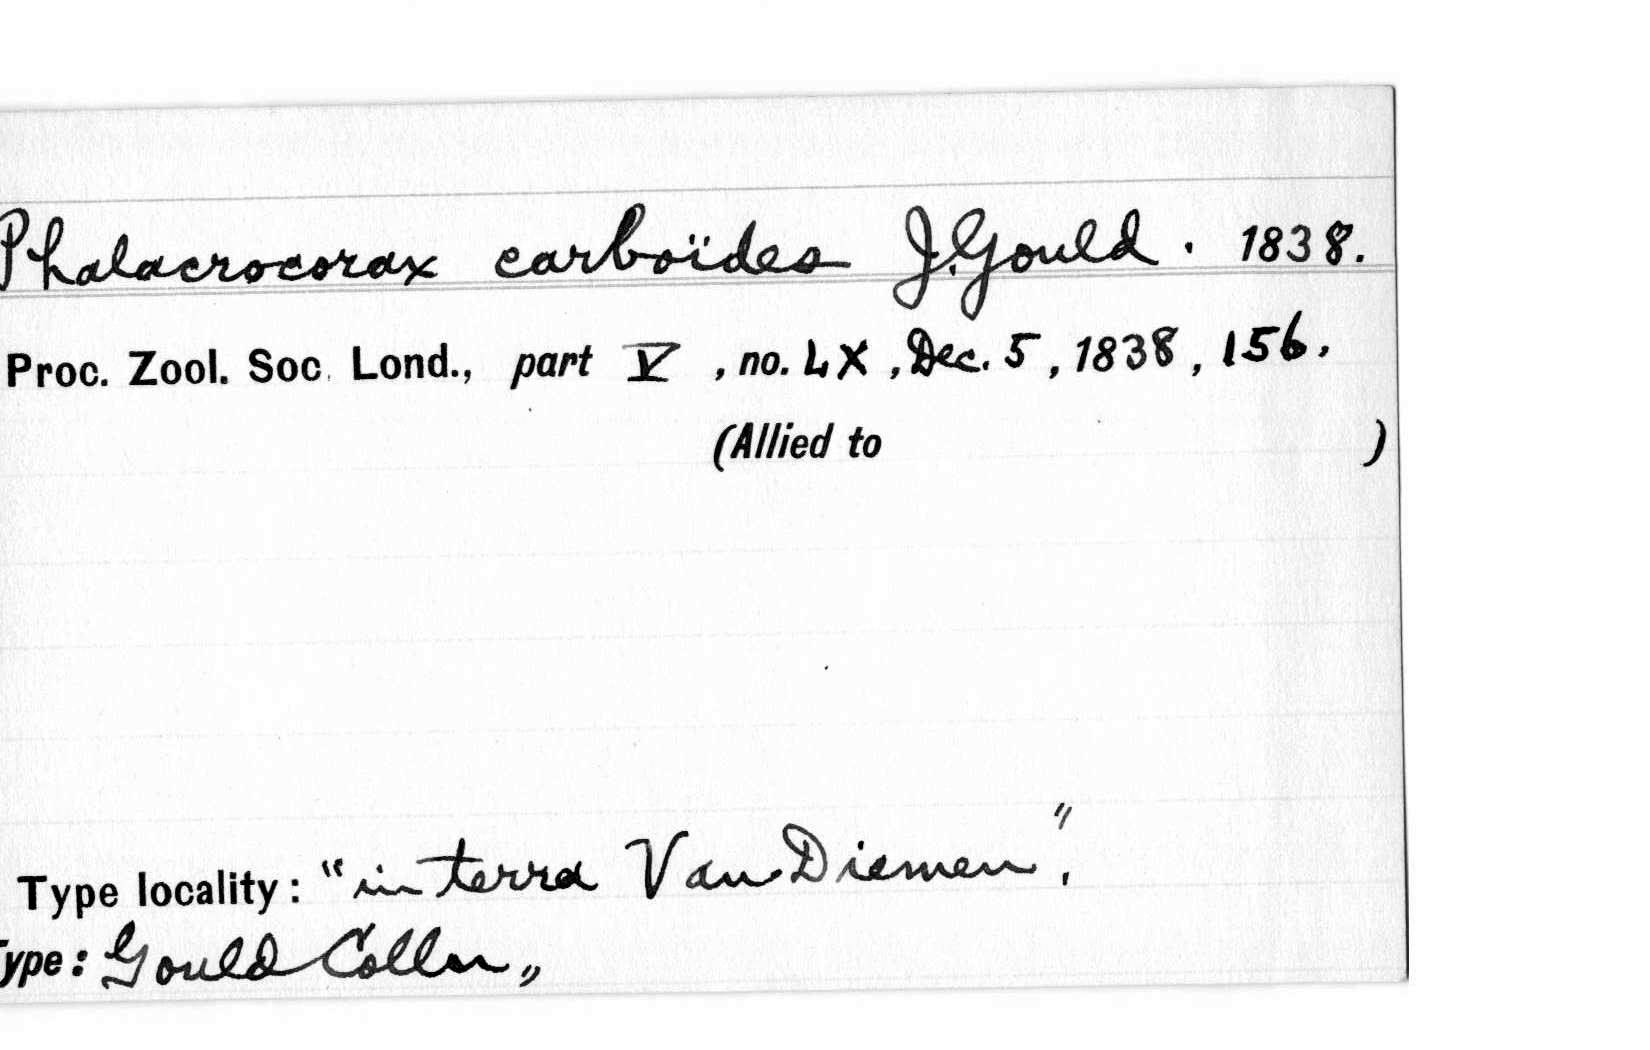 Phalacrocorax carboïdes J. Gould. 1838.
Proc. Zool. Soc. Lond., part V, no. LX, Dec. 5, 1838, 156.
(Allied to )
Type locality: "in terra Van Diemen".
Type: Gould Colln,,